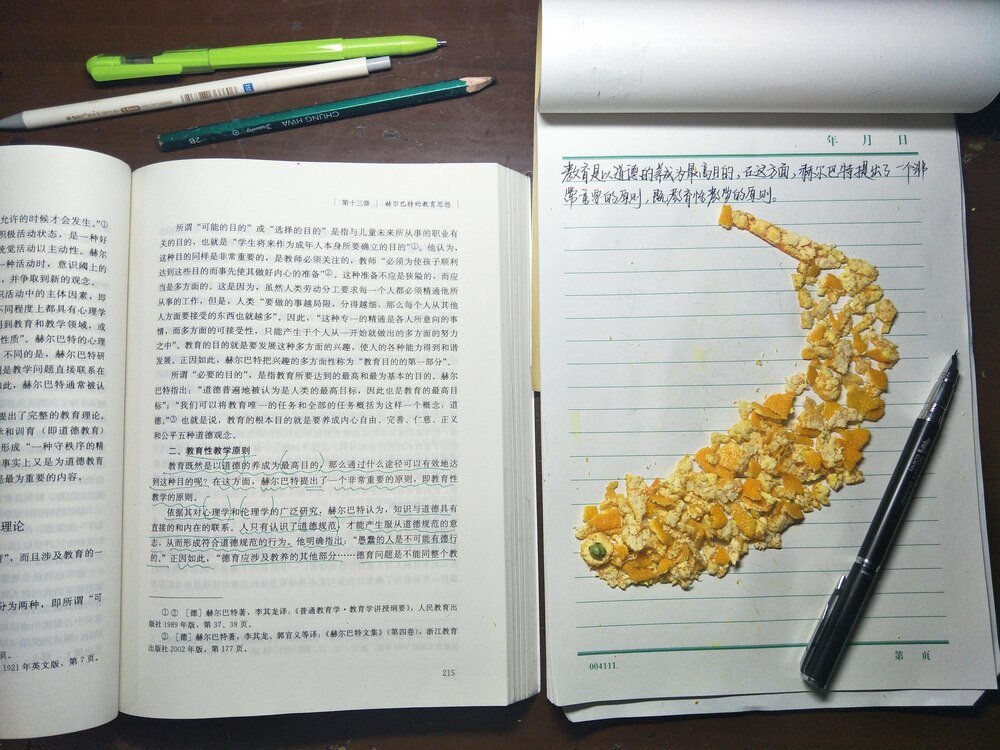 CHUNG HWA
Drawing
2B
允许的时候才会发生。”①
积极活动状态，是一种好
觉活动以主动性。赫尔
一种活动时，意识阈上的
，并争取到新的观念。
识活动中的主体因素，即
不同程度上都具有心理学
用到教育和教学领域，或
性质”。赫尔巴特的心理
。不同的是，赫尔巴特研
是教学问题直接联系在
如此，赫尔巴特通常被认
提出了完整的教育理论。
学和训育（即道德教育）
形成“一种守秩序的精
事实上又是为道德教育
是最为重要的内容。
理论
育”，而且涉及教育的一
分为两种，即所谓“可
页。
1921年英文版，第7页。
第十三章 | 赫尔巴特的教育思想
所谓“可能的目的”或“选择的目的”是指与儿童未来所从事的职业有
关的目的，也就是“学生将来作为成年人本身所要确立的目的”①。他认为，
这种目的同样是非常重要的，是教师必须关注的，教师“必须为使孩子顺利
达到这些目的而事先使其做好内心的准备”②。这种准备不应是狭隘的，而应
当是多方面的。这是因为，虽然人类劳动分工要求每一个人都必须精通他所
从事的工作，但是，人类“要做的事越局限，分得越细，那么每个人从其他
人方面要接受的东西也就越多”。因此，“这种专一的精通是各人所意向的事
情，而多方面的可接受性，只能产生于个人从一开始就做出的多方面的努力
之中”。教育的目的就是要发展这种多方面的兴趣，使人的各种能力得到和谐
发展。正因如此，赫尔巴特把兴趣的多方面性称为“教育目的的第一部分”。
所谓“必要的目的”，是指教育所要达到的最高和最为基本的目的。赫尔
巴特指出：“道德普遍地被认为是人类的最高目标，因此也是教育的最高目
标”；“我们可以将教育唯一的任务和全部的任务概括为这样一个概念：道
德。”③也就是说，教育的根本目的就是要养成内心自由、完善、仁慈、正义
和公平五种道德观念。
二、教育性教学原则
教育既然是以道德的养成为最高目的，那么通过什么途径可以有效地达
到这种目的呢？在这方面，赫尔巴特提出了一个非常重要的原则，即教育性
教学的原则。
依据其对心理学和伦理学的广泛研究，赫尔巴特认为，知识与道德具有
直接的和内在的联系。人只有认识了道德规范，才能产生服从道德规范的意
志，从而形成符合道德规范的行为。他明确指出：“愚蠢的人是不可能有德行
的。”正因如此，“德育应涉及教养的其他部分……德育问题是不能同整个教
①②［德］赫尔巴特著，李其龙译：《普通教育学·教育学讲授纲要》，人民教育出
版社1989年版，第37、38页。
③［德］赫尔巴特著，李其龙、郭官义等译：《赫尔巴特文集》（第四卷），浙江教育
出版社2002年版，第177页。
215
年 月 日
教育是以道德的养成为最高目的，在这方面，赫尔巴特提出了一个非
常重要的原则，既教育性教学的原则。
004111.
第 页